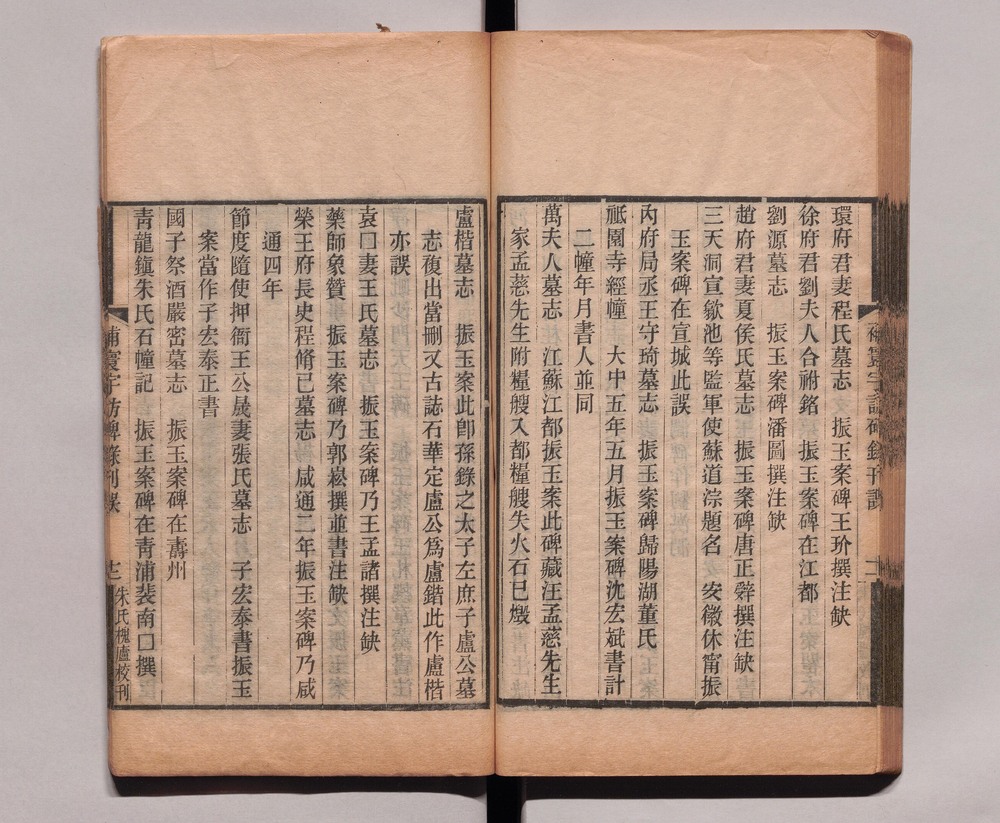 環府君妻程氏墓志　振玉案碑王玠撰注缺
徐府君劉夫人合祔銘　振玉案碑在江都
劉源墓志　振玉案碑潘圖撰注缺
趙府君妻夏侯氏墓志　振玉案碑唐正辭撰注缺
三天洞宣歙池等監軍使蘇道淙題名　安徽休甯振
玉案碑在宣城此誤
內府局丞王守琦墓志　振玉案碑歸陽湖董氏
祗園寺經幢　大中五年五月振玉案碑沈宏斌書計
二幢年月書人並同
萬夫人墓志　江蘇江都振玉案此碑藏汪孟慈先生
家孟慈先生附糧艘入都糧艘失火石已燬
補寰宇訪碑錄刊誤
盧楷墓志　振玉案此卽孫錄之太子左庶子盧公墓
志複出當刪又古誌石華定盧公爲盧鍇此作盧楷
亦誤
袁囗妻王氏墓志　振玉案碑乃王孟諸撰注缺
藥師象贊　振玉案碑乃郭崧撰並書注缺
榮王府長史程脩己墓志　咸通二年振玉案碑乃咸
通四年
節度隨使押衙王公晟妻張氏墓志　子宏泰書振玉
案當作子宏泰正書
國子祭酒嚴密墓志　振玉案碑在壽州
靑龍鎭朱氏石幢記　振玉案碑在靑浦裴南囗撰
補寰宇訪碑錄刊誤
朱氏槐廬校刊